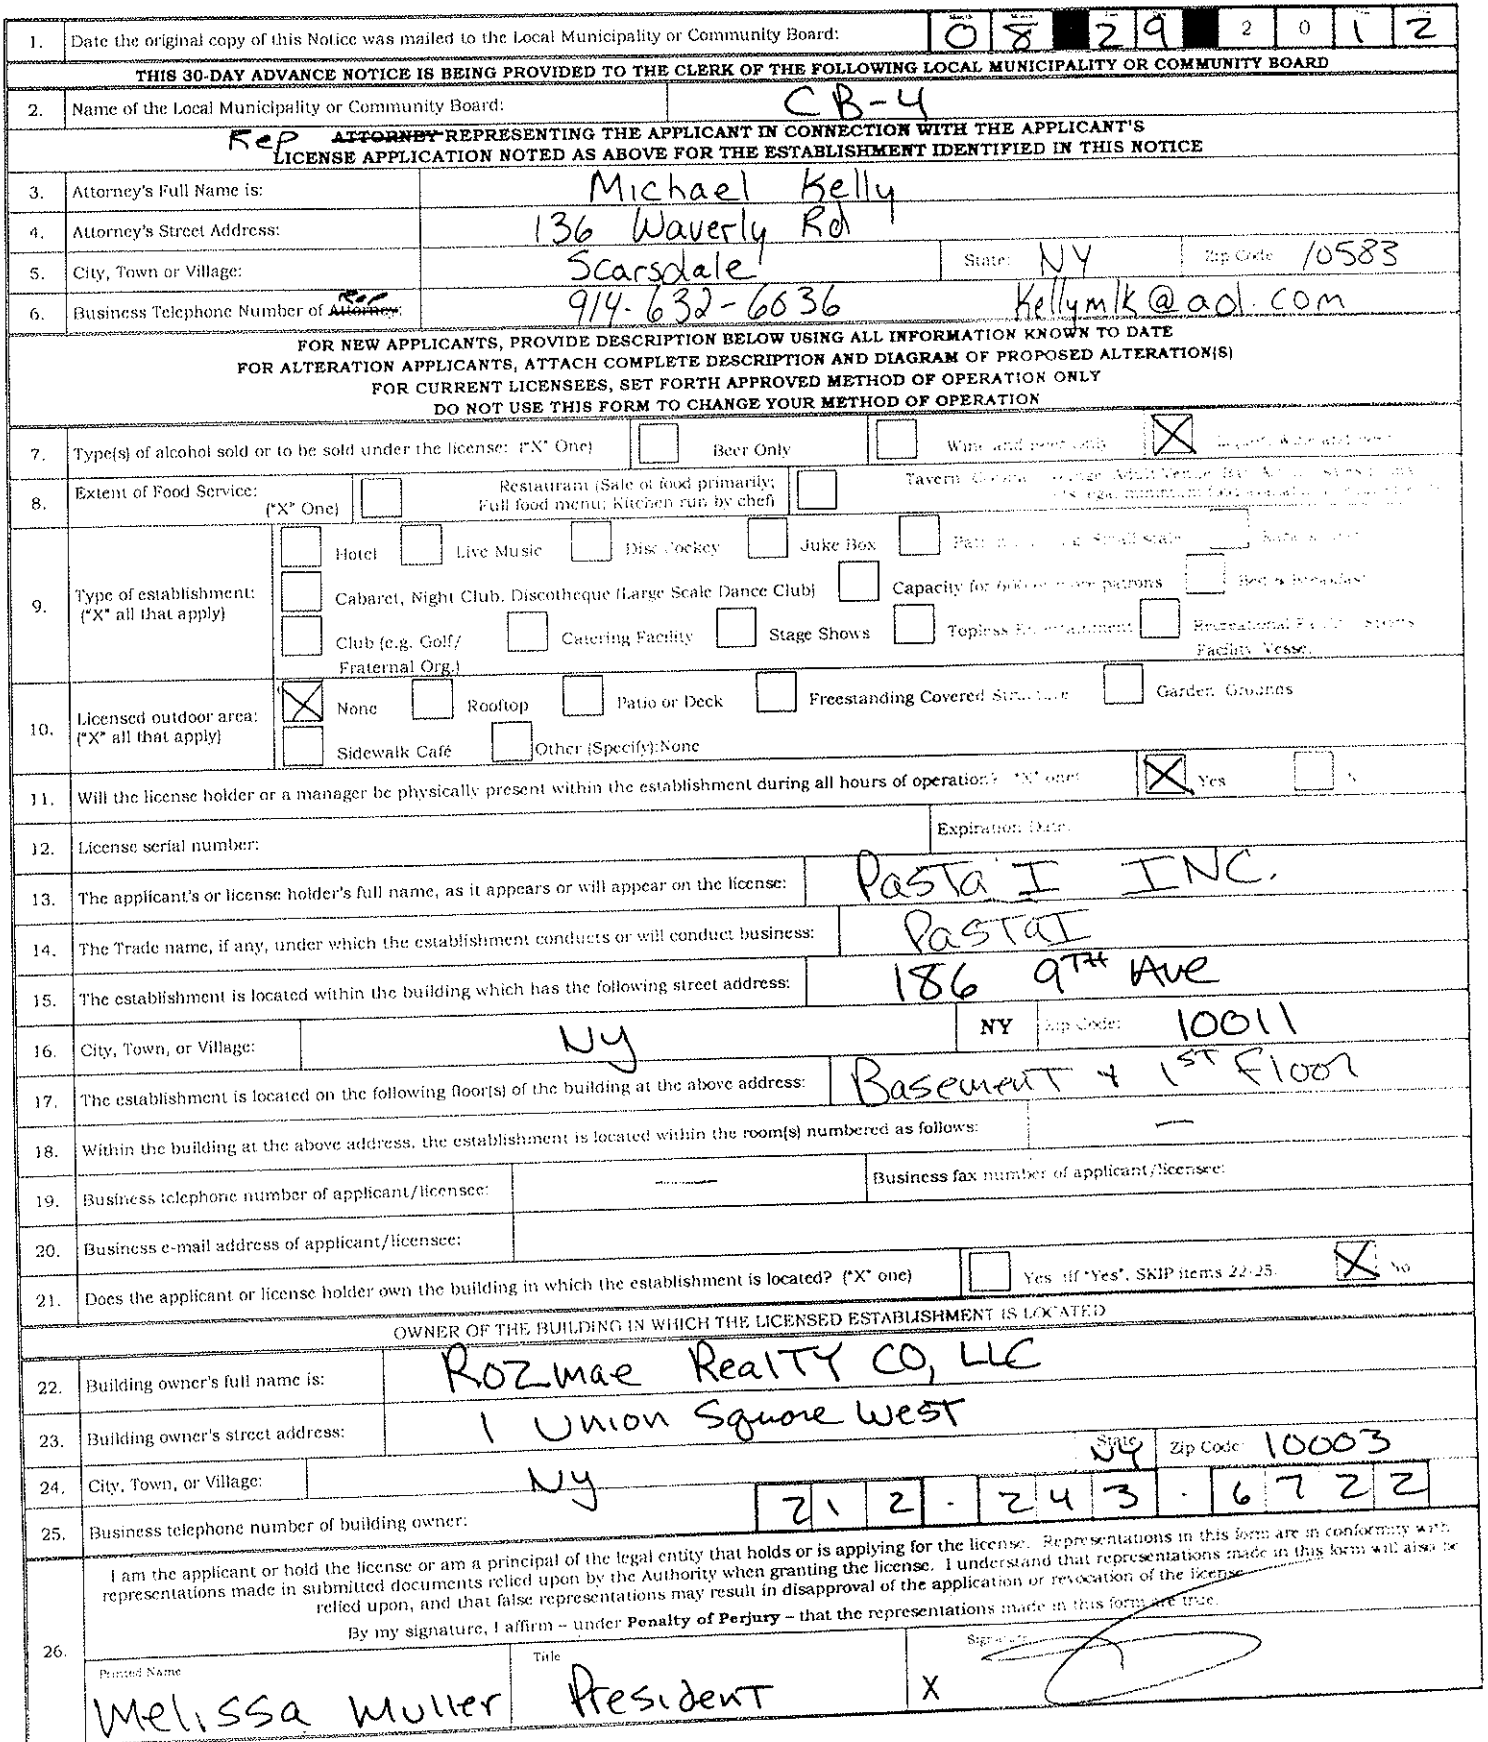 1. Date the original copy of this Notice was mailed to the Local Municipality or Community Board: 08 29 2012
THIS 30-DAY ADVANCE NOTICE IS BEING PROVIDED TO THE CLERK OF THE FOLLOWING LOCAL MUNICIPALITY OR COMMUNITY BOARD
2. Name of the Local Municipality or Community Board: CB-4
Rep ATTORNEY REPRESENTING THE APPLICANT IN CONNECTION WITH THE APPLICANT'S
LICENSE APPLICATION NOTED AS ABOVE FOR THE ESTABLISHMENT IDENTIFIED IN THIS NOTICE
3. Attorney's Full Name is: Michael Kelly
4. Attorney's Street Address: 136 Waverly Rd
5. City, Town or Village: Scarsdale State: NY Zip Code 10583
6. Business Telephone Number of Attorney: Rep 914-632-6036 Kellymlk@aol.com
FOR NEW APPLICANTS, PROVIDE DESCRIPTION BELOW USING ALL INFORMATION KNOWN TO DATE
FOR ALTERATION APPLICANTS, ATTACH COMPLETE DESCRIPTION AND DIAGRAM OF PROPOSED ALTERATION(S)
FOR CURRENT LICENSEES, SET FORTH APPROVED METHOD OF OPERATION ONLY
DO NOT USE THIS FORM TO CHANGE YOUR METHOD OF OPERATION
7. Type(s) of alcohol sold or to be sold under the license: ("X" One) Beer Only Wine and beer only X Liquor, wine and beer
8. Extent of Food Service: ("X" One) Restaurant (Sale of food primarily; Full food menu; Kitchen run by chef) Tavern
9. Type of establishment: ("X" all that apply)
Hotel Live Music Disc Jockey Juke Box Small Scale
Cabaret, Night Club, Discotheque (Large Scale Dance Club) Capacity for 600 or more patrons Bed & Breakfast
Club (e.g. Golf/ Fraternal Org.) Catering Facility Stage Shows Topless Entertainment Recreational Facility Sports Facility Vessel
10. Licensed outdoor area: ("X" all that apply)
X None Rooftop Patio or Deck Freestanding Covered Structure Garden Grounds
Sidewalk Café Other (Specify):None
11. Will the license holder or a manager be physically present within the establishment during all hours of operation? "X" one: X Yes
12. License serial number: Expiration Date:
13. The applicant's or license holder's full name, as it appears or will appear on the license: PasTa I INC.
14. The Trade name, if any, under which the establishment conducts or will conduct business: PasTaI
15. The establishment is located within the building which has the following street address: 186 9TH Ave
16. City, Town, or Village: NY NY Zip Code: 10011
17. The establishment is located on the following floor(s) of the building at the above address: BasemenT + 1ST Floor
18. Within the building at the above address, the establishment is located within the room(s) numbered as follows: —
19. Business telephone number of applicant/licensee: — Business fax number of applicant/licensee:
20. Business e-mail address of applicant/licensee:
21. Does the applicant or license holder own the building in which the establishment is located? ("X" one) Yes (If "Yes", SKIP items 22-25. X No
OWNER OF THE BUILDING IN WHICH THE LICENSED ESTABLISHMENT IS LOCATED
22. Building owner's full name is: Rozmae RealTY CO, LLC
23. Building owner's street address: 1 Union Square WesT
24. City, Town, or Village: NY State NY Zip Code 10003
25. Business telephone number of building owner: 212-243-6722
26. I am the applicant or hold the license or am a principal of the legal entity that holds or is applying for the license. Representations in this form are in conformity with
representations made in submitted documents relied upon by the Authority when granting the license. I understand that representations made in this form will also be
relied upon, and that false representations may result in disapproval of the application or revocation of the license.
By my signature, I affirm – under Penalty of Perjury – that the representations made in this form are true.
Printed Name Title Signature
Melissa Muller PresidenT X